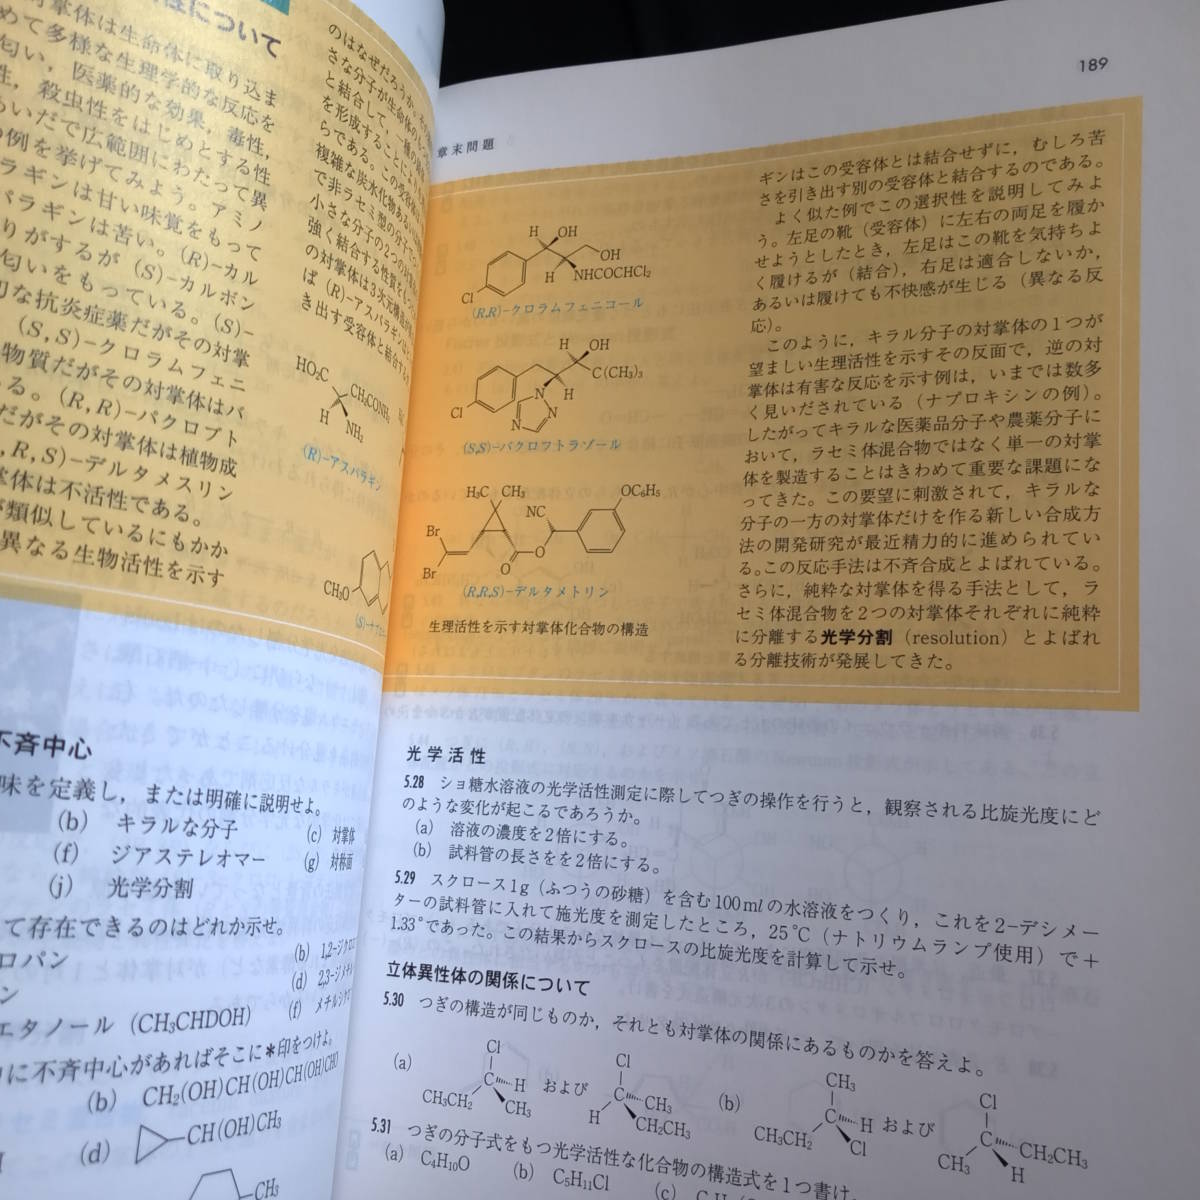 性について
対掌体は生命体に取り込ま
めて多様な生理学的な反応を
匂い，医薬的な効果，毒性，
性，殺虫性をはじめとする性
あいだで広範囲にわたって異
の例を挙げてみよう。アミノ
ラギンは甘い味覚をもって
パラギンは苦い。(R)-カル
りがするが (S)-カルボン
匂いをもっている。(S)-
切な抗炎症薬だがその対掌
(S,S)-クロラムフェニ
物質だがその対掌体はバ
る。(R,R)-パクロブト
だがその対掌体は植物成
,R,S)-デルタメスリン
掌体は不活性である。
が類似しているにもかか
異なる生物活性を示す
のはなぜだろうか。
さな分子が生命体の
と結合して，一種の
を形成することによ
らである。この受容
複雑な炭水化物ある
で非ラセミ型の分子で
小さな分子の2つの対掌
強く結合する性質を
の対掌体は3次元構造が
ば (R)-アスパラギンは
き出す受容体と結合する
HO₂C
CH₂CONH₂
H
NH₂
(R)-アスパラギン
CH₃O
189
章末問題
H OH
OH
H
NHCOCHCl₂
Cl
(R,R)-クロラムフェニコール
H OH
C(CH₃)₃
N H
Cl
N
N
(S,S)-パクロブトラゾール
H₃C CH₃
OC₆H₅
NC
Br
Br
O
O
(R,R,S)-デルタメトリン
生理活性を示す対掌体化合物の構造
ギンはこの受容体とは結合せずに，むしろ苦
さを引き出す別の受容体と結合するのである。
よく似た例でこの選択性を説明してみよ
う。左足の靴（受容体）に左右の両足を履か
せようとしたとき，左足はこの靴を気持ちよ
く履けるが（結合），右足は適合しないか，
あるいは履けても不快感が生じる（異なる反
応）。
このように，キラル分子の対掌体の1つが
望ましい生理活性を示すその反面で，逆の対
掌体は有害な反応を示す例は，いまでは数多
く見いだされている（ナプロキシンの例）。
したがってキラルな医薬品分子や農薬分子に
おいて，ラセミ体混合物ではなく単一の対掌
体を製造することはきわめて重要な課題にな
ってきた。この要望に刺激されて，キラルな
分子の一方の対掌体だけを作る新しい合成方
法の開発研究が最近精力的に進められてい
る。この反応手法は不斉合成とよばれている。
さらに，純粋な対掌体を得る手法として，ラ
セミ体混合物を2つの対掌体それぞれに純粋
に分離する光学分割（resolution）とよばれ
る分離技術が発展してきた。
不斉中心
味を定義し，または明確に説明せよ。
(b) キラルな分子 (c) 対掌体
(f) ジアステレオマー (g) 対称面
(j) 光学分割
て存在できるのはどれか示せ。
ロパン
(b) 1,2-ジクロロ
ン
(d) 2,3-ジメチル
エタノール (CH₃CHDOH)
に不斉中心があればそこに＊印をつけよ。
(b) CH₂(OH)CH(OH)CH(OH)CHO
(d) CH(OH)CH₃
CH₃
光学活性
5.28 ショ糖水溶液の光学活性測定に際してつぎの操作を行うと，観察される比旋光度にど
のような変化が起こるであろうか。
(a) 溶液の濃度を2倍にする。
(b) 試料管の長さをを2倍にする。
5.29 スクロース1g（ふつうの砂糖）を含む100mlの水溶液をつくり，これを2-デシメー
ターの試料管に入れて施光度を測定したところ，25℃（ナトリウムランプ使用）で＋
1.33°であった。この結果からスクロースの比旋光度を計算して示せ。
立体異性体の関係について
5.30 つぎの構造が同じものか，それとも対掌体の関係にあるものかを答えよ。
(a)
Cl
C H
CH₃CH₂ CH₃
および
Cl
C CH₃
H CH₂CH₃
(b)
CH₃
C H
CH₃CH₂ Cl
および
Cl
C CH₂CH₃
CH₃ H
5.31 つぎの分子式をもつ光学活性な化合物の構造式を1つ書け。
(a) C₄H₁₀O (b) C₅H₁₁Cl (c)